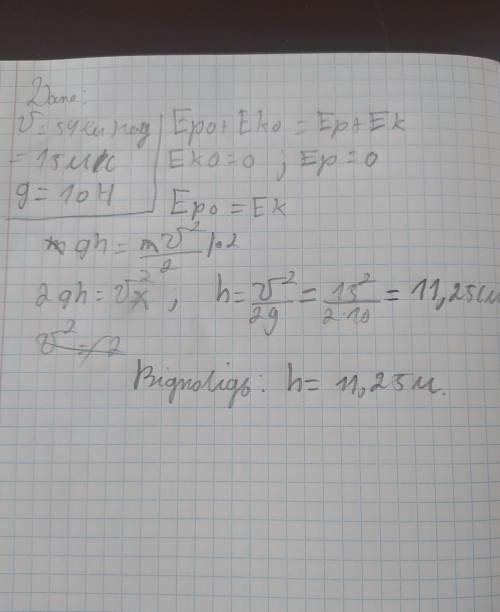 Дано:
v = 54 км/год
= 15 м/с
g = 10 Н
Epo + Eko = Ep + Ek
Eko = 0 ; Ep = 0
Epo = Ek
mgh = mv²/2 |·2
2gh = v² ; h = v²/2g = 15²/2·10 = 11,25 м
v² = 2
Відповідь: h = 11,25 м.